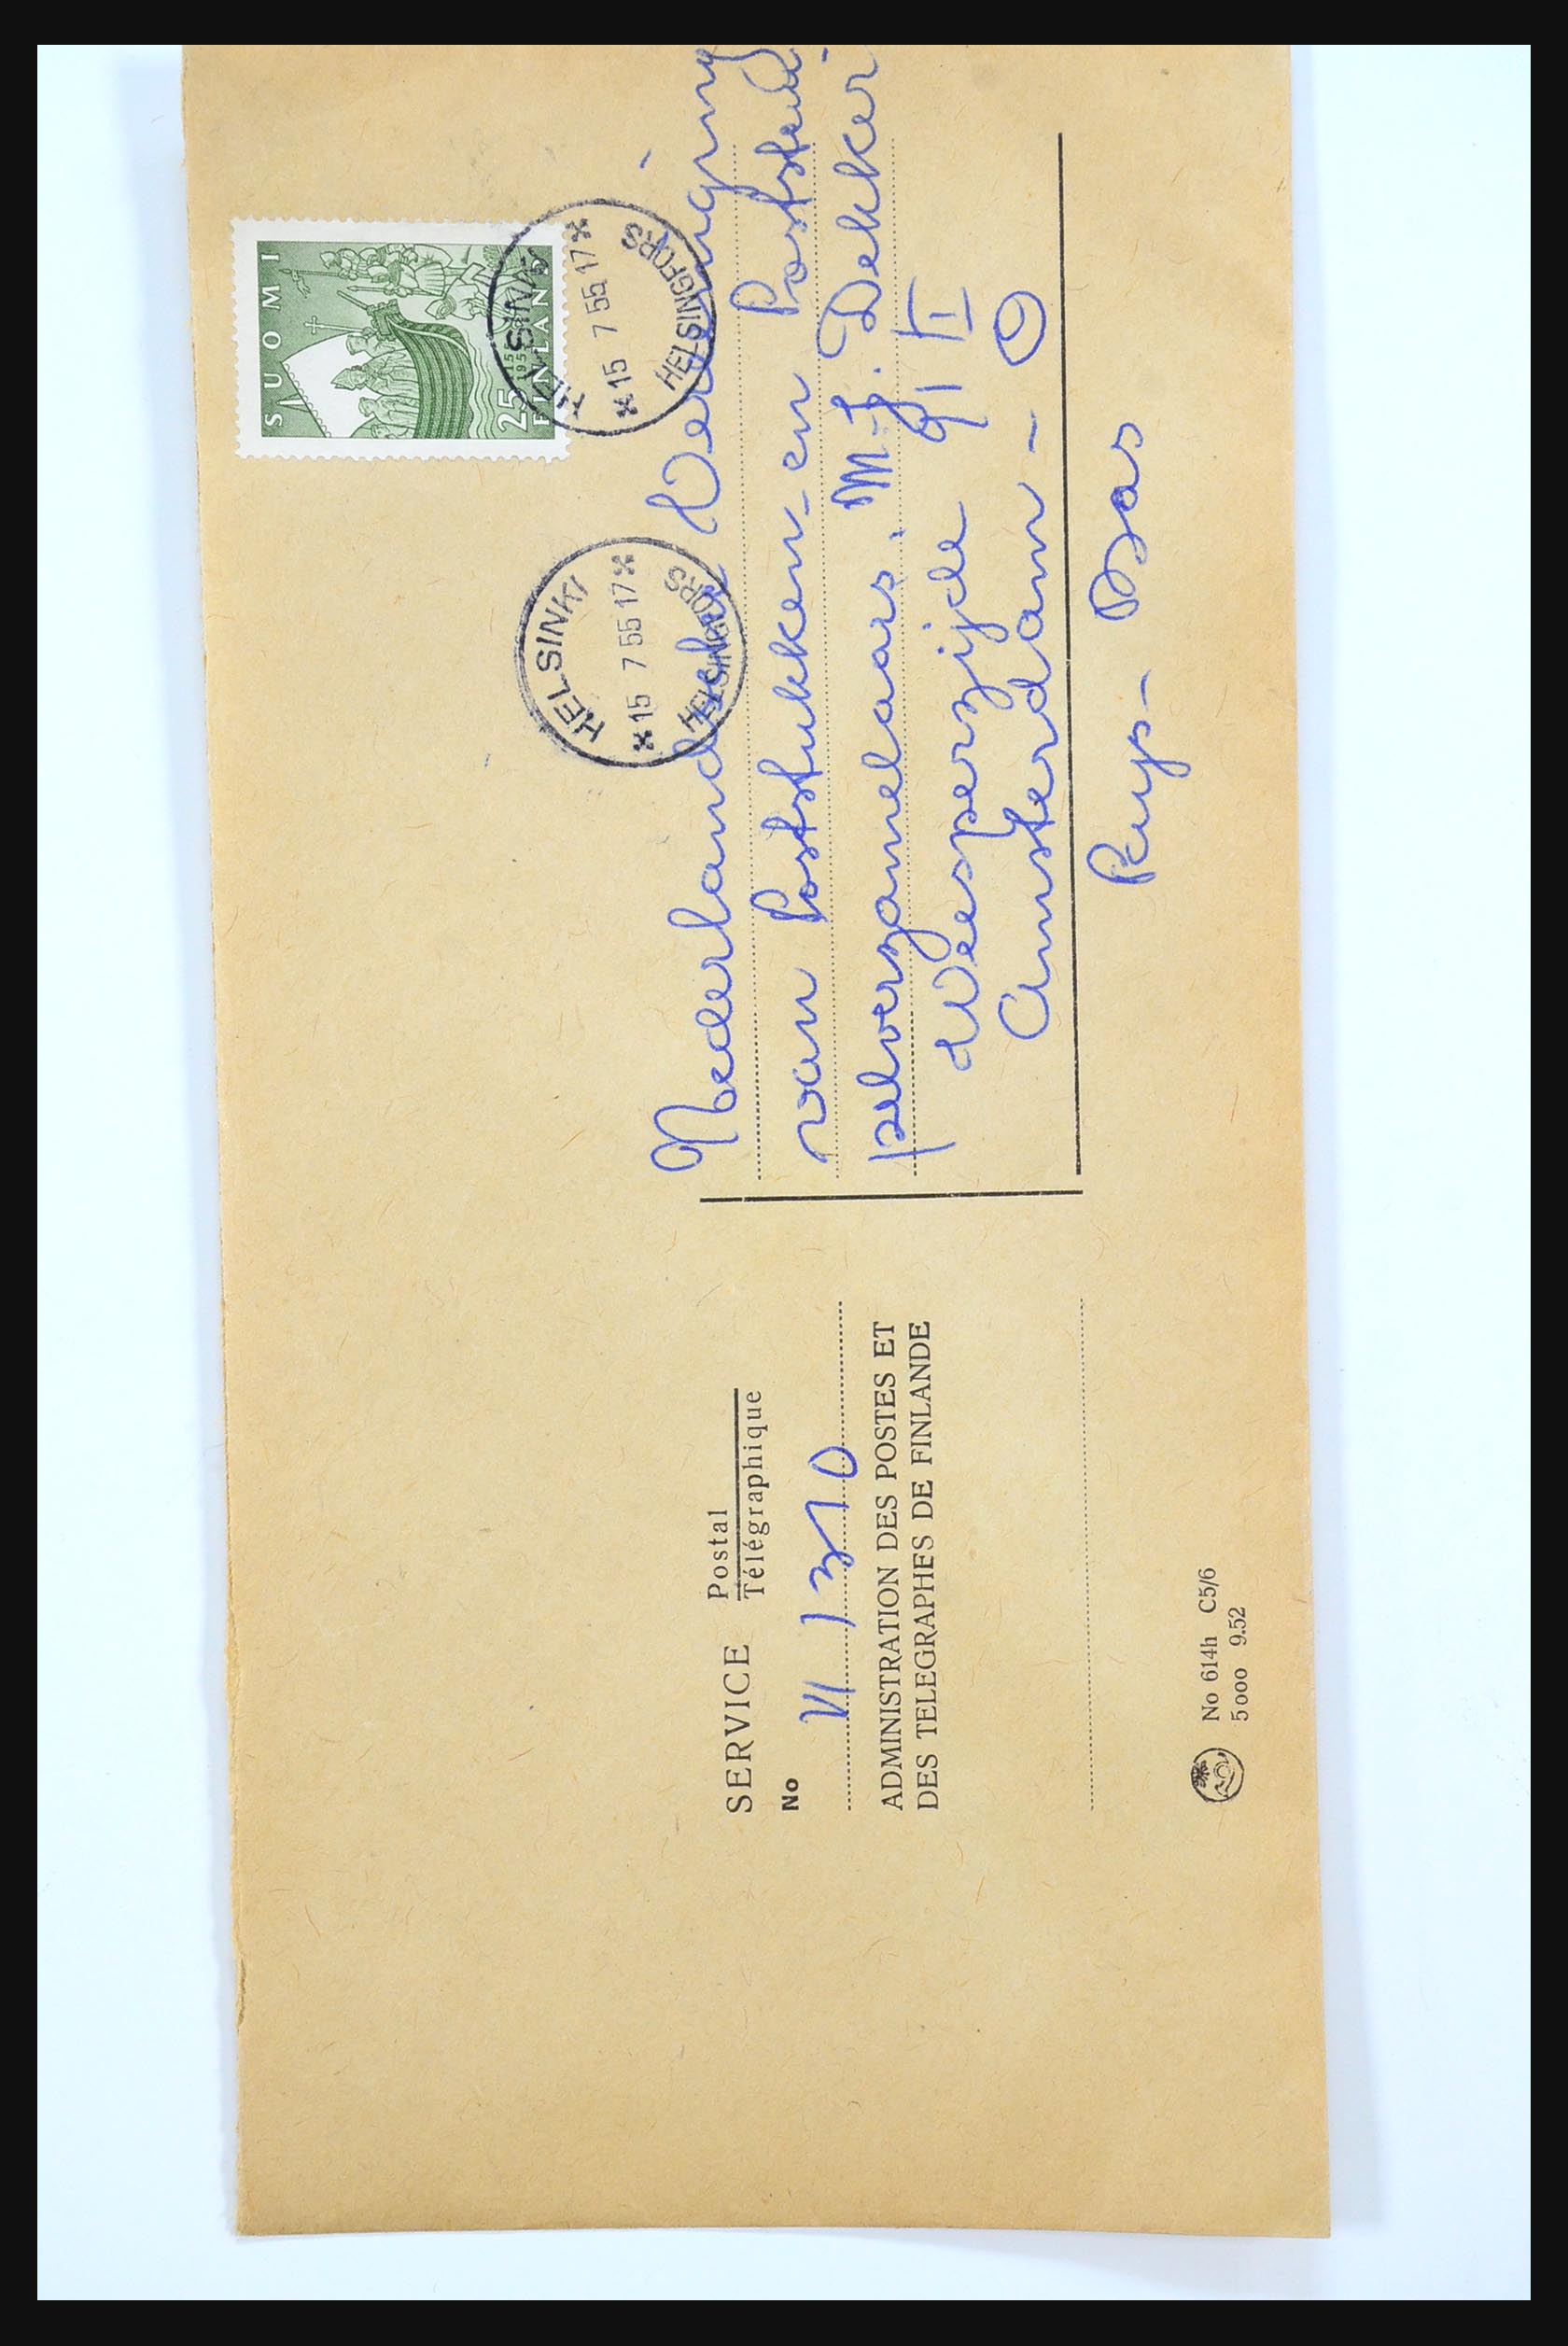 SUOMI
25
1155
1955
FINLAND
HELSINKI
15 7 55 17
HELSINGFORS
HELSINKI
15 7 55 17
HELSINGFORS
Nederlandsche Vereeniging
van Poststukken- en Poststem-
pelverzamelaars. M.J. Dekker
Weesperzijde 91 II
Amsterdam - O
Pays-Bas
SERVICE Postal
Télégraphique
No
VI 1310
ADMINISTRATION DES POSTES ET
DES TELEGRAPHES DE FINLANDE
No 614h C5/6
5000 9.52